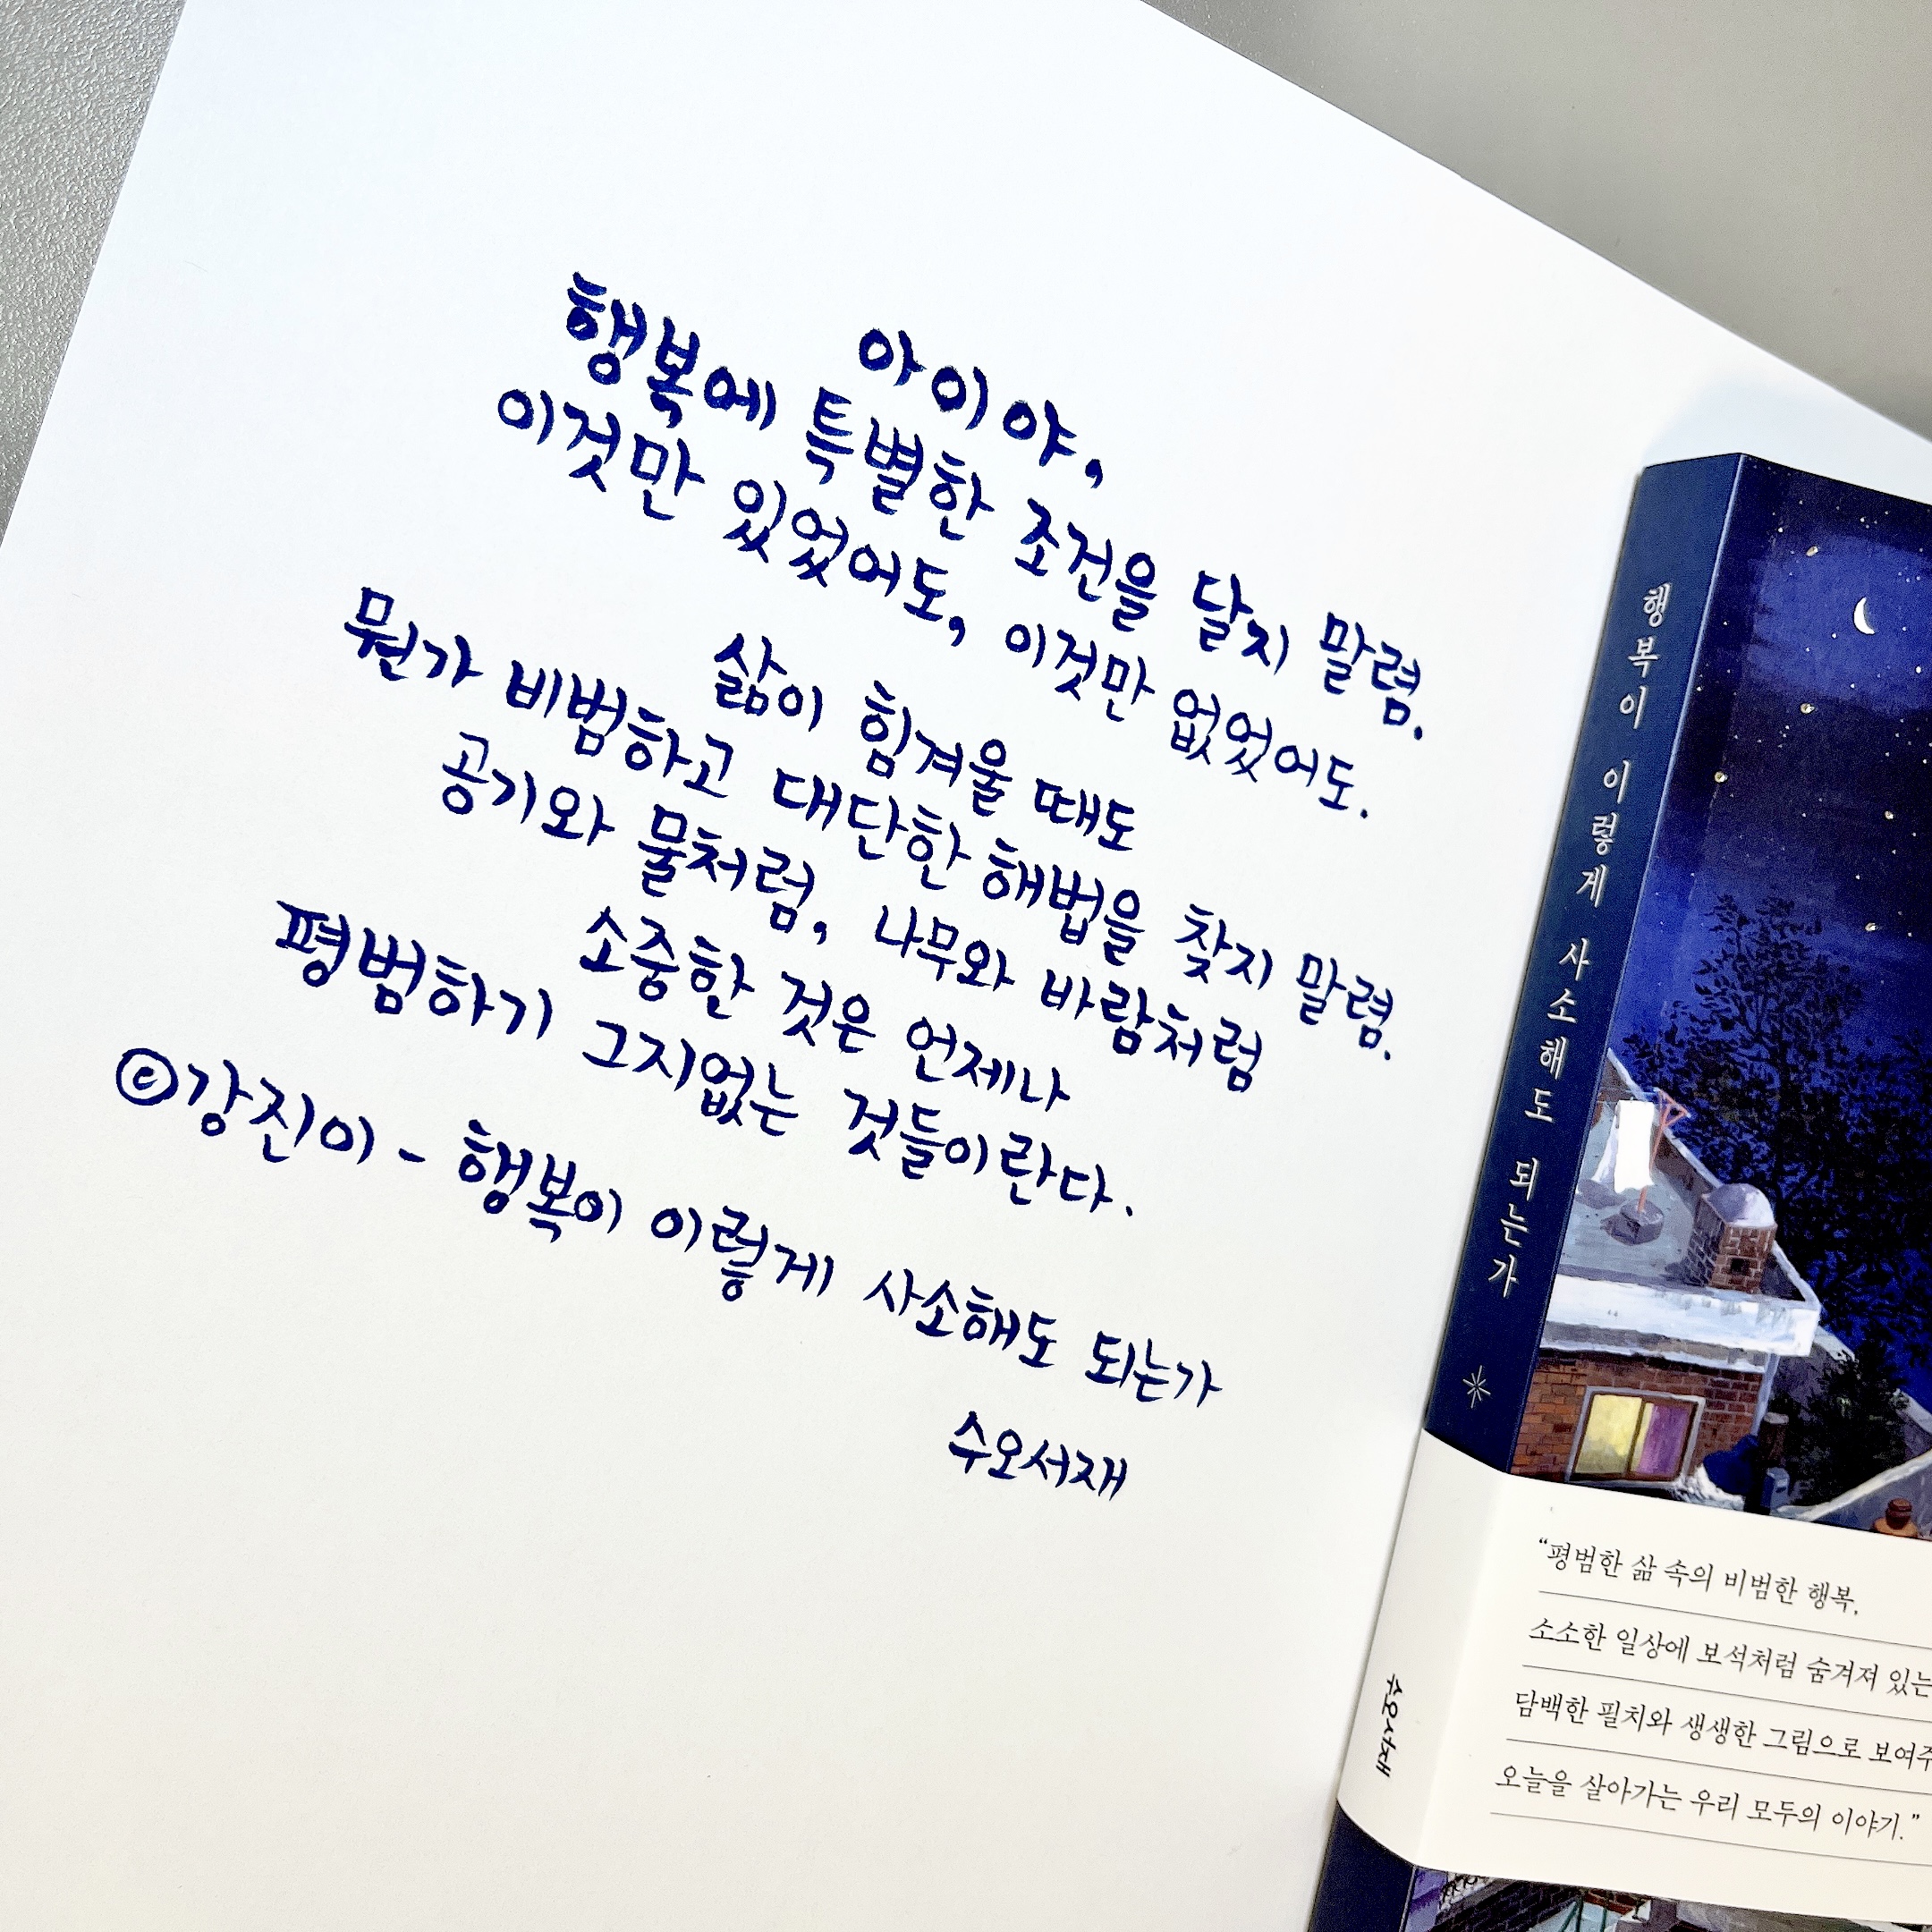 아이야,
행복에 특별한 조건을 달지 말렴.
이것만 있었어도, 이것만 없었어도.
삶이 힘겨울 때도
뭔가 비범하고 대단한 해법을 찾지 말렴.
공기와 물처럼, 나무와 바람처럼
소중한 것은 언제나
평범하기 그지없는 것들이란다.
©강진이 - 행복이 이렇게 사소해도 되는가
수오서재
행복이 이렇게 사소해도 되는가
수오서재
“평범한 삶 속의 비범한 행복,
소소한 일상에 보석처럼 숨겨져 있는
담백한 필치와 생생한 그림으로 보여주
오늘을 살아가는 우리 모두의 이야기.”